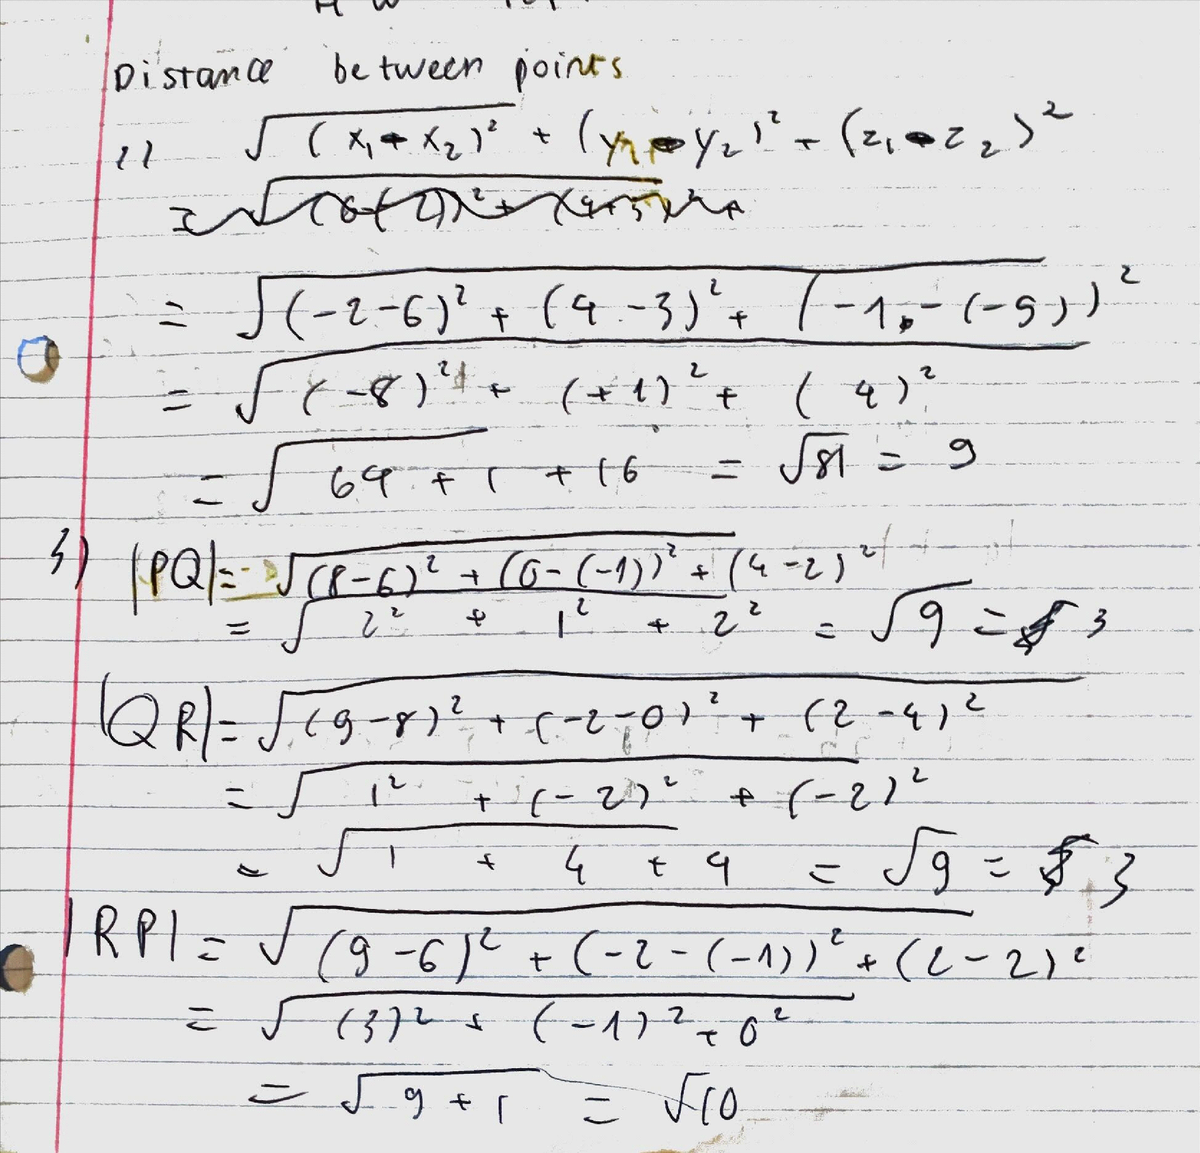 Distance between points
1) √(x₁ - x₂)² + (y₁ - y₂)² + (z₁ - z₂)²
= √(-2-6)² + (4-3)² + (-1-(-5))²
= √(-8)² + (+1)² + (4)²
= √64 + 1 + 16 = √81 = 9
3) |PQ| = √(8-6)² + (0-(-1))² + (4-2)²
= √2² + 1² + 2² = √9 = 3
|QR| = √(9-8)² + (-2-0)² + (2-4)²
= √1² + (-2)² + (-2)²
= √1 + 4 + 4 = √9 = 3
|RP| = √(9-6)² + (-2-(-1))² + (2-2)²
= √(3)² + (-1)² + 0²
= √9+1 = √10